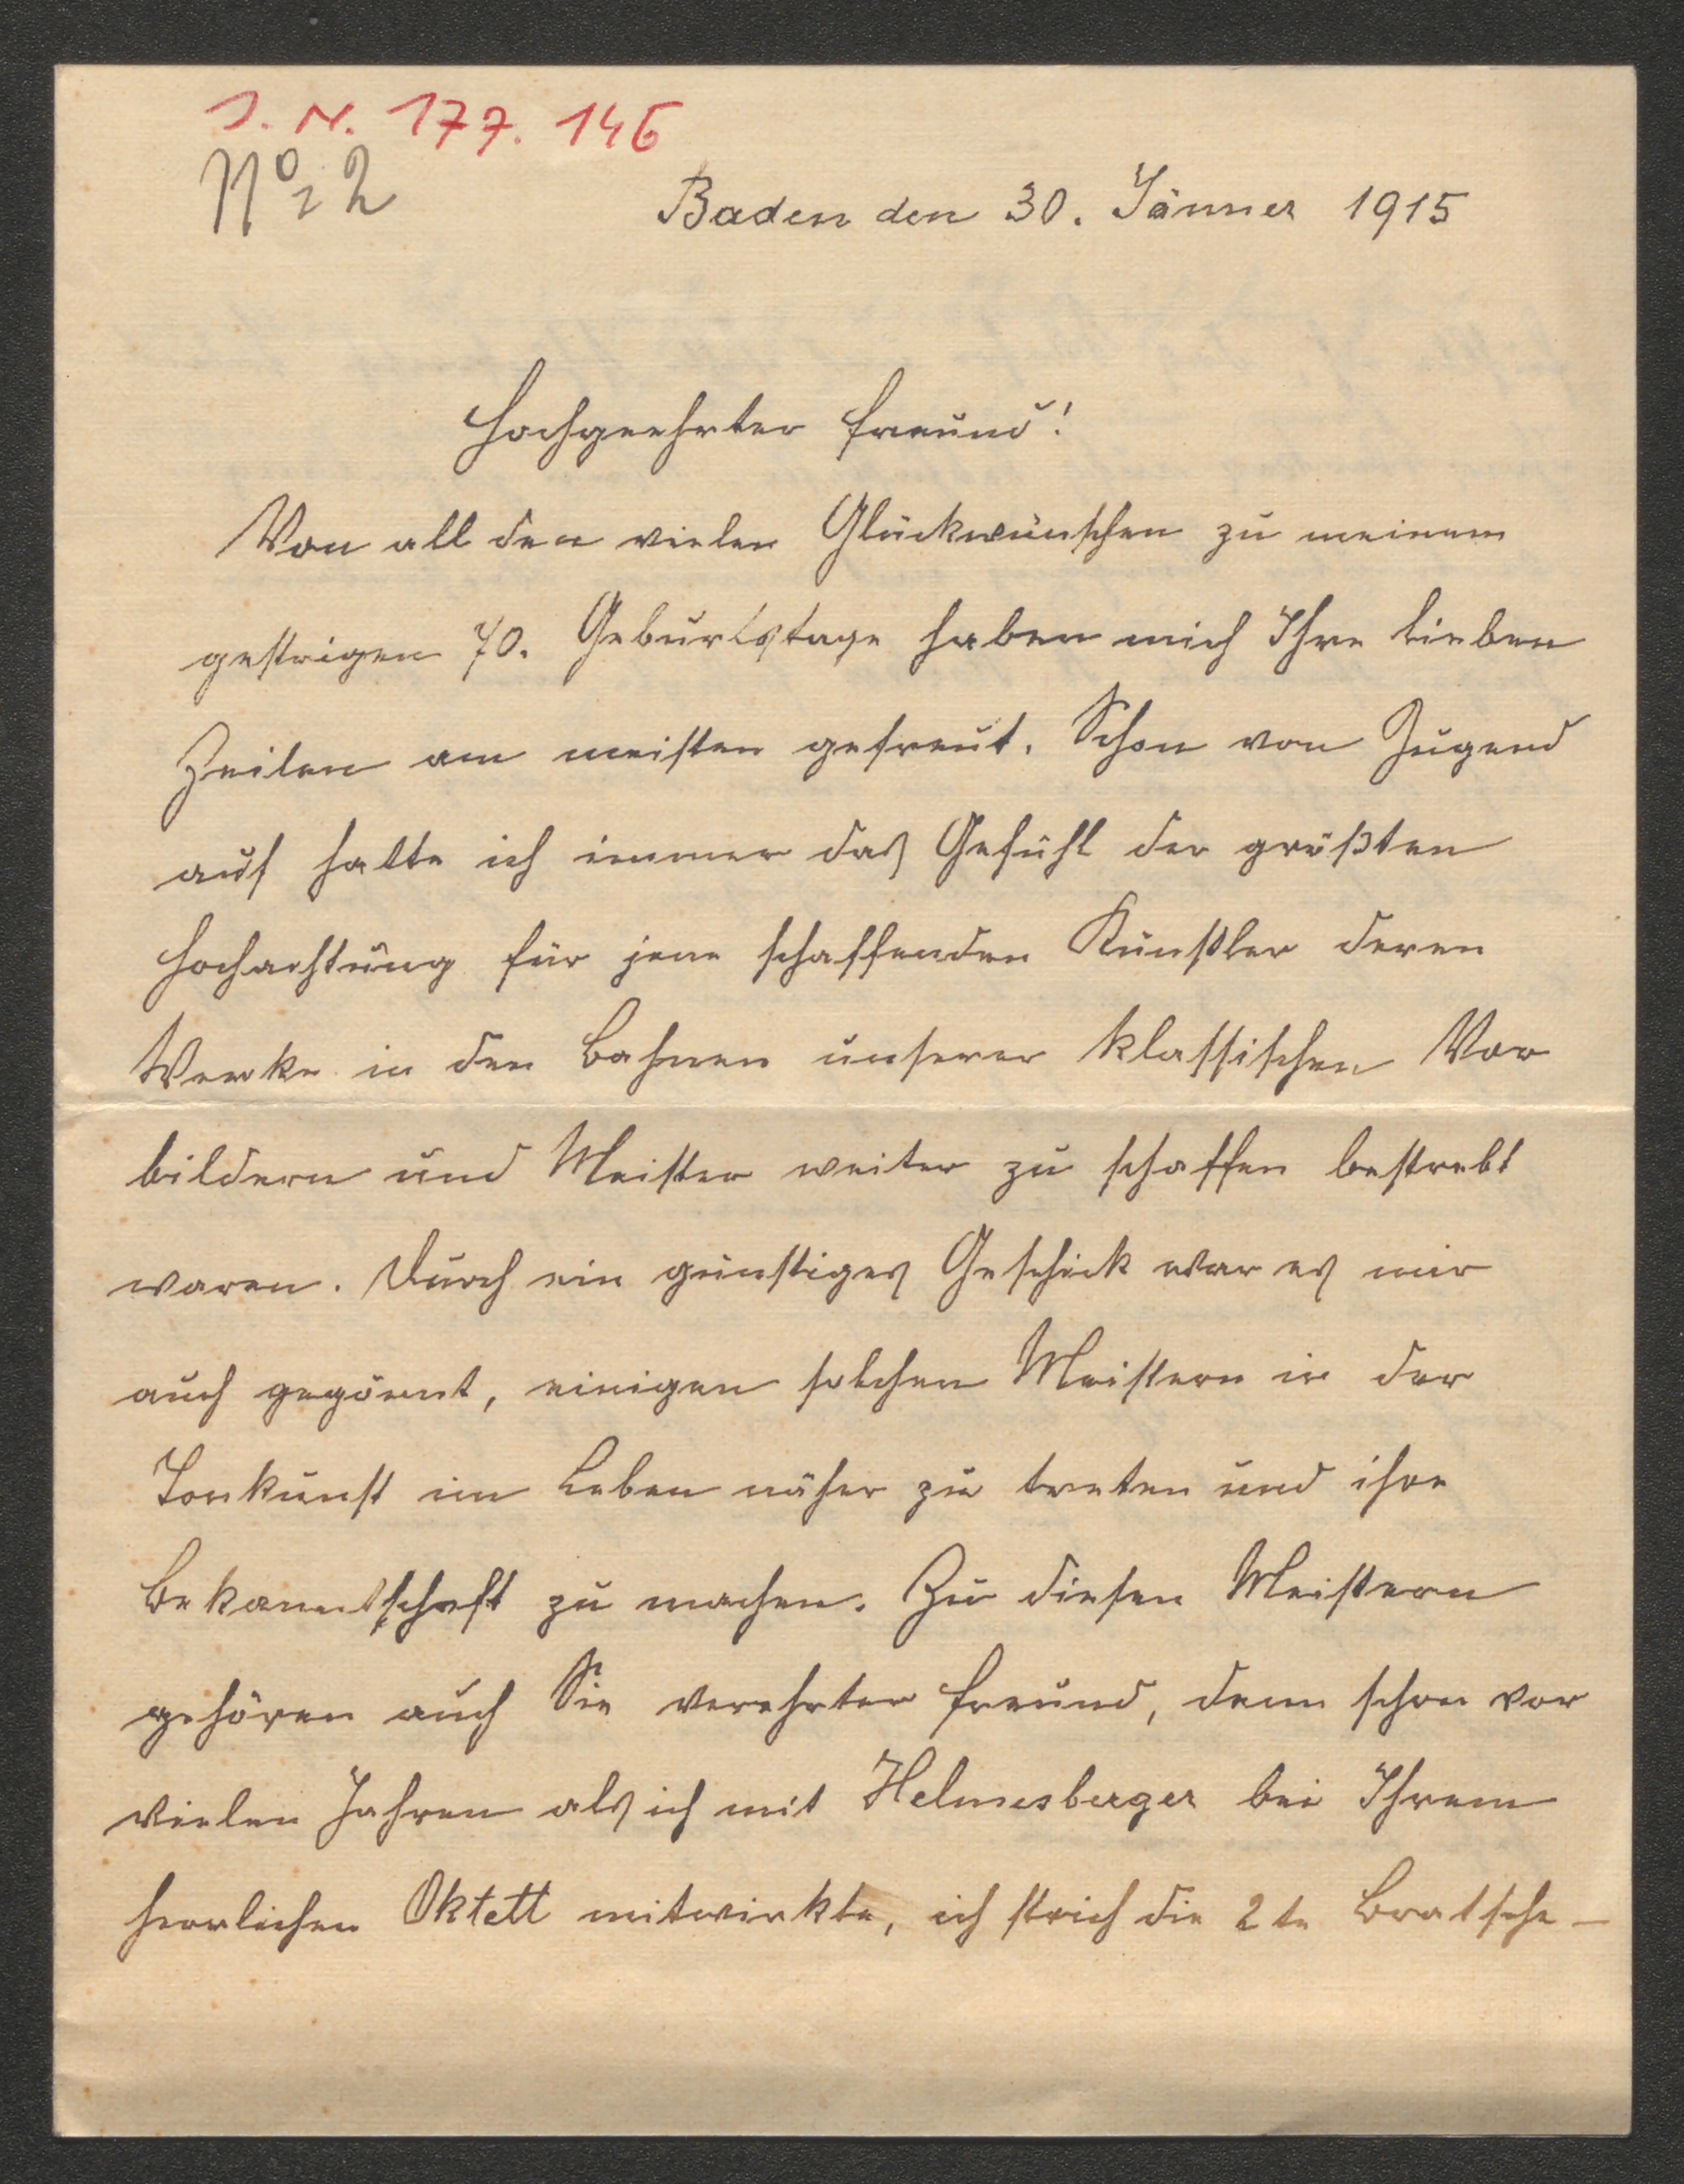 J. N. 177.146
No 2
Baden den 30. Jänner 1915
Hochgeehrter Freund!
Von all den vielen Glückwünschen zu meinem
gestrigen 70. Geburtstage haben mich Ihre lieben
Zeilen am meisten gefreut. Schon von Jugend
auf hatte ich immer das Gefühl der größten
Hochachtung für jene schaffenden Künstler deren
Werke in den Bahnen unserer klassischen Vor
bildern und Meister weiter zu schaffen bestrebt
waren. Durch ein günstiges Geschick war es mir
auch gegönnt, einigen solchen Meistern in der
Tonkunst im Leben näher zu treten und ihre
Bekanntschaft zu machen. Zu diesen Meistern
gehören auch Sie verehrter Freund, denn schon vor
vielen Jahren als ich mit Helmesberger bei Ihrem
herrlichen Oktett mitwirkte, ich strich die 2te Bratsche –